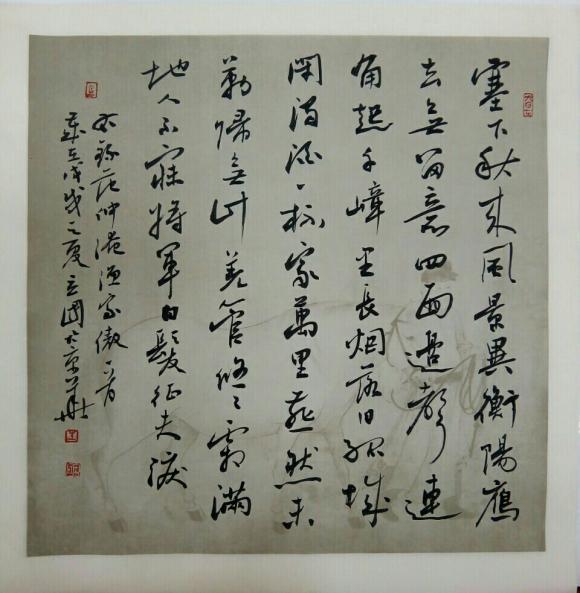 塞下秋来風景異衡陽鴈
去無留意四面邊聲連
角起千嶂里長烟落日孤城
閉濁酒一杯家萬里燕然未
勒歸無計羌管悠々霜滿
地人不寐將軍白髮征夫淚
録范仲淹漁家傲一首
歲在戊戌之夏立國於京華